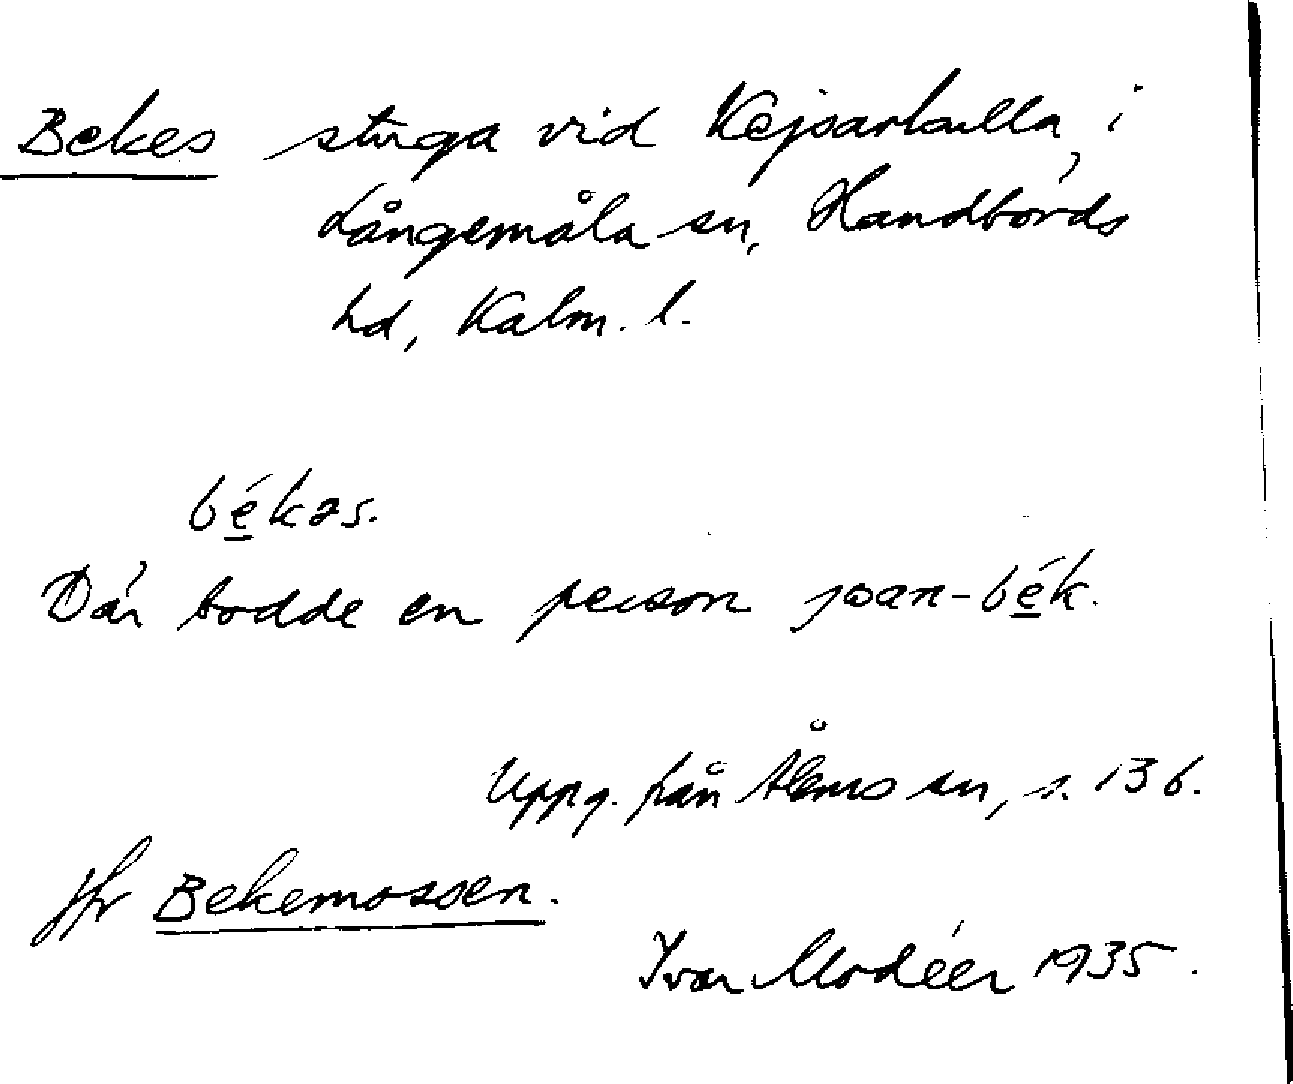 Bekes stuga vid Kejsarkulla, i
Långemåla sn, Handbörds
hd, Kalm. l.
bé̱kəs.
Där bodde en person joan-bé̱k.
Uppg. från Ålems sn, s. 136.
Jfr Bekemossen.
Ivar Modéer 1935.